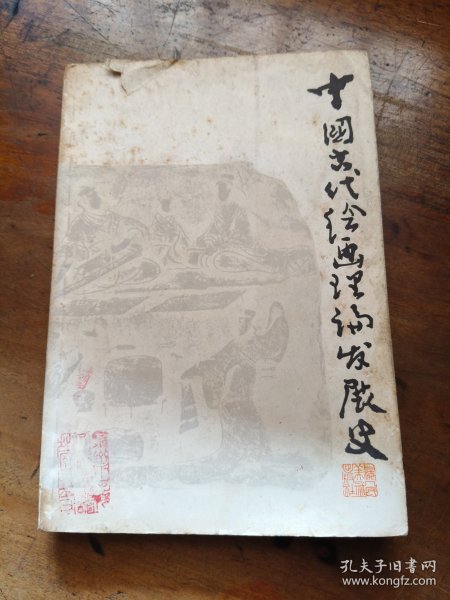 中國古代绘画理论发展史
孔夫子旧书网
www.kongfz.com